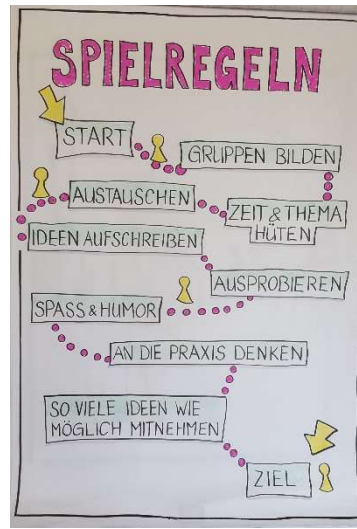 SPIELREGELN
START
GRUPPEN BILDEN
AUSTAUSCHEN
ZEIT & THEMA
HÜTEN
IDEEN AUFSCHREIBEN
AUSPROBIEREN
SPASS & HUMOR
AN DIE PRAXIS DENKEN
SO VIELE IDEEN WIE
MÖGLICH MITNEHMEN
ZIEL